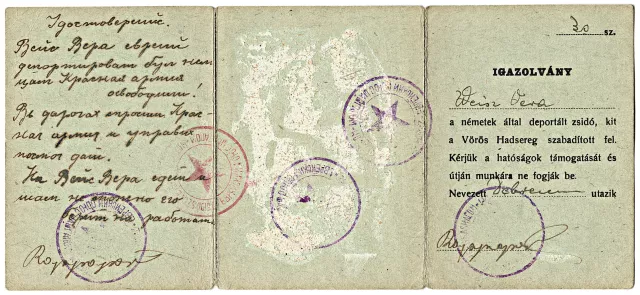 Удостоверение.
Вейс Вера еврей
депортирован был нем
цам Красная армия
освободини!
Въ дорогах просим Крас
ная армия и управи
помог дай.
На Вейс Вера един
шат не можено его
брит на работат
30 sz.
IGAZOLVÁNY
Weisz Vera
a németek által deportált zsidó, kit
a Vörös Hadsereg szabadított fel.
Kérjük a hatóságok támogatását és
útján munkára ne fogják be.
Nevezett Debrecen utazik